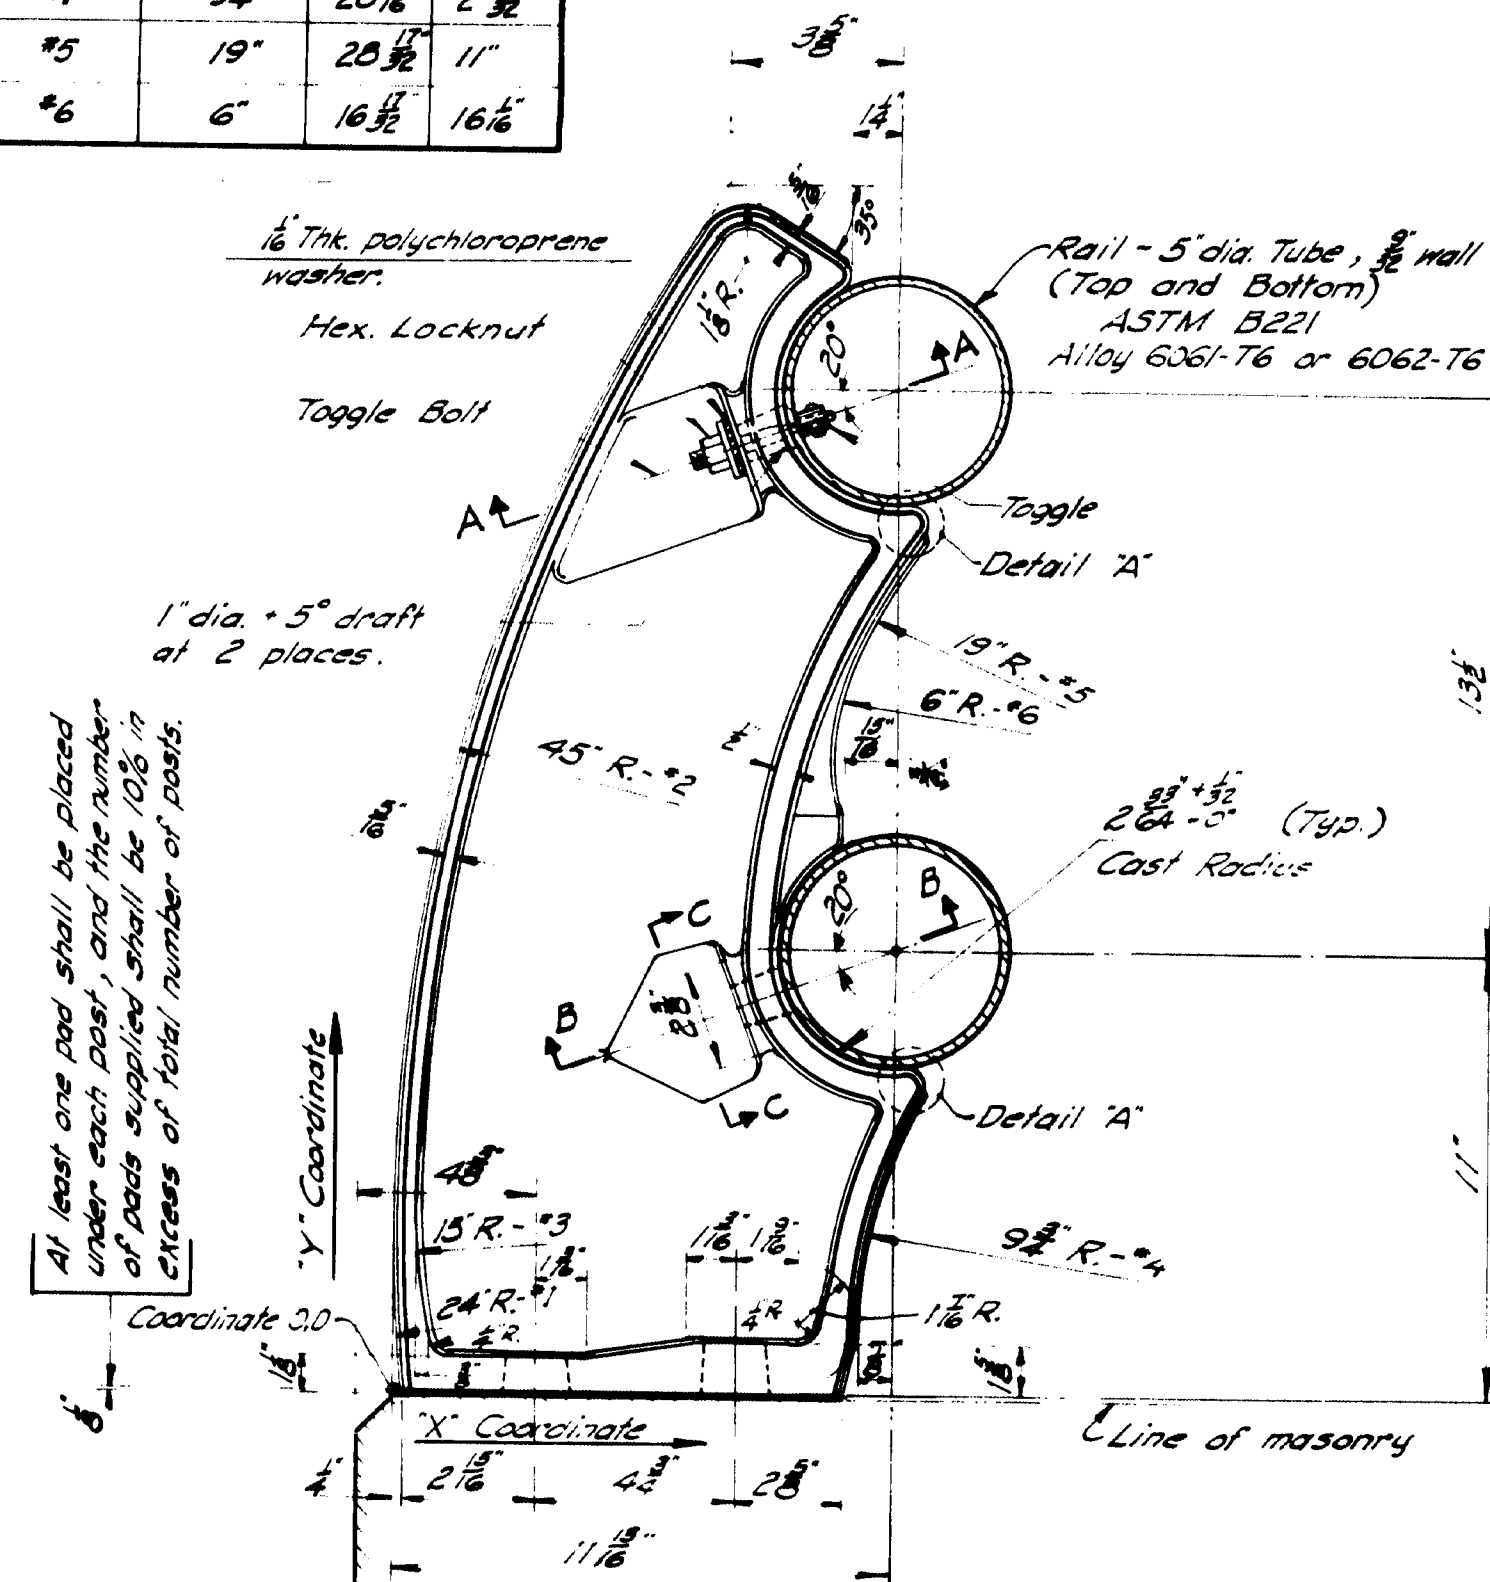 #5 19" 28 17/32" 11"
#6 6" 16 17/32" 16 1/16"
3 5/8"
1 1/4"
5/16"
35°
1/16" Thk. polychloroprene
washer.
Hex. Locknut
Toggle Bolt
1 1/8" R.
20°
A
Rail - 5" dia. Tube, 9/32" wall
(Top and Bottom)
ASTM B221
Alloy 6061-T6 or 6062-T6
A
Toggle
Detail "A"
1" dia. + 5° draft
at 2 places.
19" R. - #5
6" R. - #6
13 1/2"
45" R. - #2
(Typ.)
Cast Radius
20°
B
C
B
C
Detail "A"
At least one pad shall be placed
under each post, and the number
of pads supplied shall be 10% in
excess of total number of posts.
"Y" Coordinate
15" R. - #3
24" R. - #1
1/4" R.
1/4" R.
9 3/4" R. - #4
11"
Coordinate 0,0
1 1/8"
1/8"
1 5/8"
"X" Coordinate
Line of masonry
2 15/16"
2 5/8"
11 15/16"